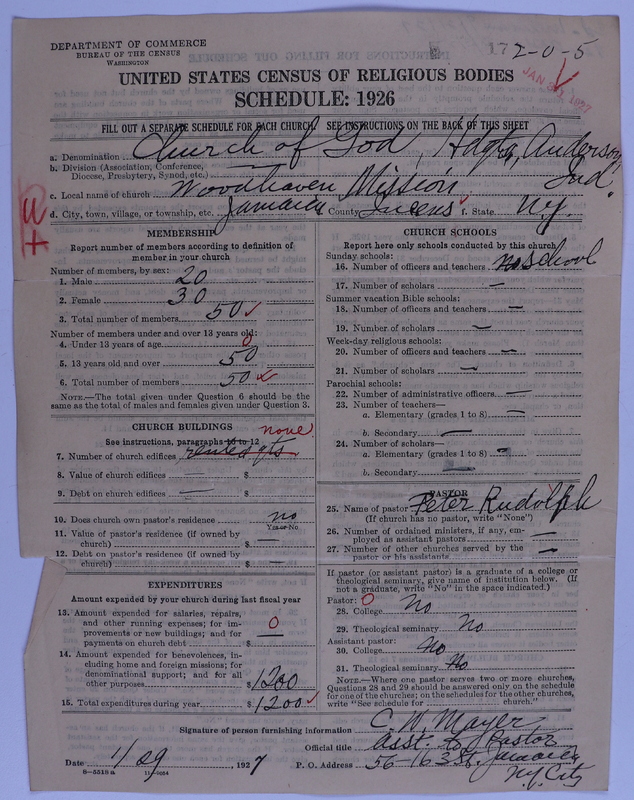 DEPARTMENT OF COMMERCE
BUREAU OF THE CENSUS
WASHINGTON
17 2-0-5
JAN 31 1927
UNITED STATES CENSUS OF RELIGIOUS BODIES
SCHEDULE: 1926
FILL OUT A SEPARATE SCHEDULE FOR EACH CHURCH. SEE INSTRUCTIONS ON THE BACK OF THIS SHEET
a. Denomination Church of God, Hdqts, Anderson, Ind.
b. Division (Association, Conference, Diocese, Presbytery, Synod, etc.)
c. Local name of church Woodhaven Mission
d. City, town, village, or township, etc. Jamaica County Queens f. State N.Y.
MEMBERSHIP
Report number of members according to definition of member in your church
Number of members, by sex:
1. Male 20
2. Female 30
3. Total number of members 50
Number of members under and over 13 years old:
4. Under 13 years of age 0
5. 13 years old and over 50
6. Total number of members 50
NOTE.—The total given under Question 6 should be the same as the total of males and females given under Question 3.
CHURCH BUILDINGS
none
See instructions, paragraphs 10 to 12
7. Number of church edifices rented qts
8. Value of church edifices $
9. Debt on church edifices — $
10. Does church own pastor's residence no
Yes or No
11. Value of pastor's residence (if owned by church) $ —
12. Debt on pastor's residence (if owned by church) $ —
EXPENDITURES
Amount expended by your church during last fiscal year
13. Amount expended for salaries, repairs, and other running expenses; for improvements or new buildings; and for payments on church debt $ — 0
14. Amount expended for benevolences, including home and foreign missions; for denominational support; and for all other purposes $ 1200
15. Total expenditures during year $ 1200
CHURCH SCHOOLS
Report here only schools conducted by this church
Sunday schools:
16. Number of officers and teachers no school
17. Number of scholars —
Summer vacation Bible schools:
18. Number of officers and teachers —
19. Number of scholars —
Week-day religious schools:
20. Number of officers and teachers —
21. Number of scholars —
Parochial schools:
22. Number of administrative officers —
23. Number of teachers—
a. Elementary (grades 1 to 8) —
b. Secondary —
24. Number of scholars—
a. Elementary (grades 1 to 8)
b. Secondary
PASTOR
25. Name of pastor Peter Rudolph
(If church has no pastor, write "None")
26. Number of ordained ministers, if any, employed as assistant pastors —
27. Number of other churches served by the pastor or his assistants —
If pastor (or assistant pastor) is a graduate of a college or theological seminary, give name of institution below. (If not a graduate, write "No" in the space indicated.)
Pastor: 0
28. College No
29. Theological seminary No
Assistant pastor:
30. College No
31. Theological seminary No
NOTE.—Where one pastor serves two or more churches, Questions 28 and 29 should be answered only on the schedule for one of the churches; on the schedules for the other churches, write "See schedule for church."
Signature of person furnishing information C. W. Mayer
Official title asst. to Pastor
Date 1/29, 1927 P. O. Address 56-163 St. Jamaica
N.Y. City
8—5518 a 11—9664